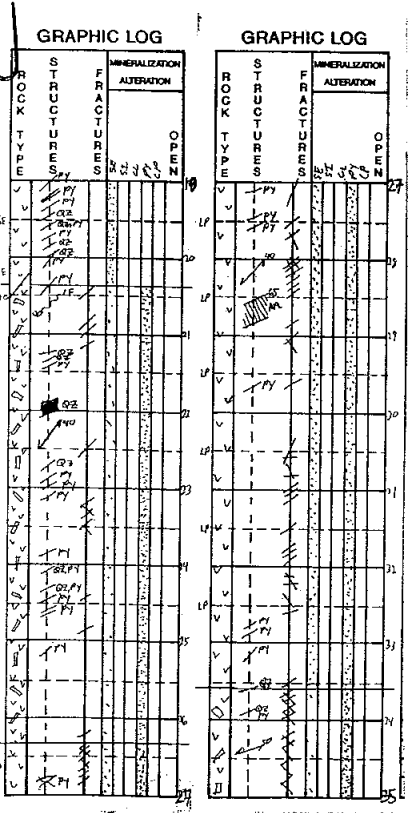 GRAPHIC LOG
ROCK TYPE
STRUCTURES
FRACTURES
MINERALIZATION
ALTERATION
OPEN
SE
SI
CL
PY
CP
PY
19
PY
PY
QZ
QZ,PY
PY
QZ
QZ
PY
20
PY
LF
21
QZ
QZ
PY
QZ
22
40
QZ
PY
PY
PY
23
PY
24
QZ,PY
QZ,PY
PY
PY
25
PY
26
PY
27
GRAPHIC LOG
ROCK TYPE
STRUCTURES
FRACTURES
MINERALIZATION
ALTERATION
OPEN
SE
SI
CL
PY
CP
27
PY
LP
PY
PY
40
28
LP
65
LP
PY
30
LP
31
LP
32
LP
PY
PY
33
PY
QZ
QZ
PY
34
35